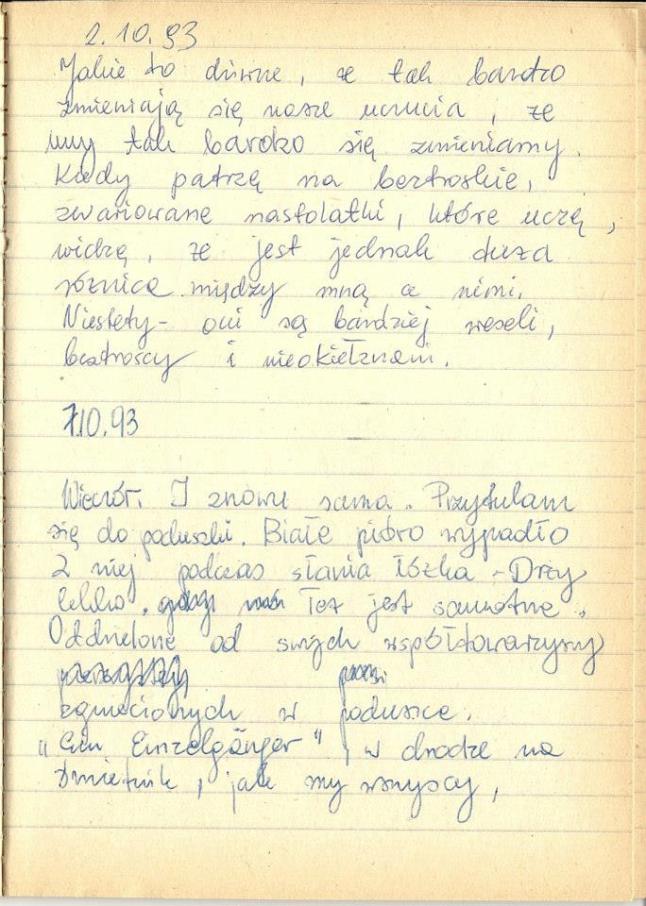 2.10.93
Jakie to dziwne, że tak bardzo
zmieniają się nasze uczucia, że
my tak bardzo się zmieniamy.
Kiedy patrzę na beztroskie,
zwariowane nastolatki, które uczę,
widzę, że jest jednak duża
różnica między mną a nimi.
Niestety - oni są bardziej weseli,
beztroscy i nieokiełznani.
7.10.93
Wieczór. I znowu sama. Przytulam
się do poduszki. Białe pióro wypadło
z niej podczas słania łóżka - Drży
lekko. Też jest samotne.
Oddzielone od swych współtowarzyszy
zgniecionych w poduszce.
"Ein Einzelgänger", w drodze na
śmietnik, jak my wszyscy,